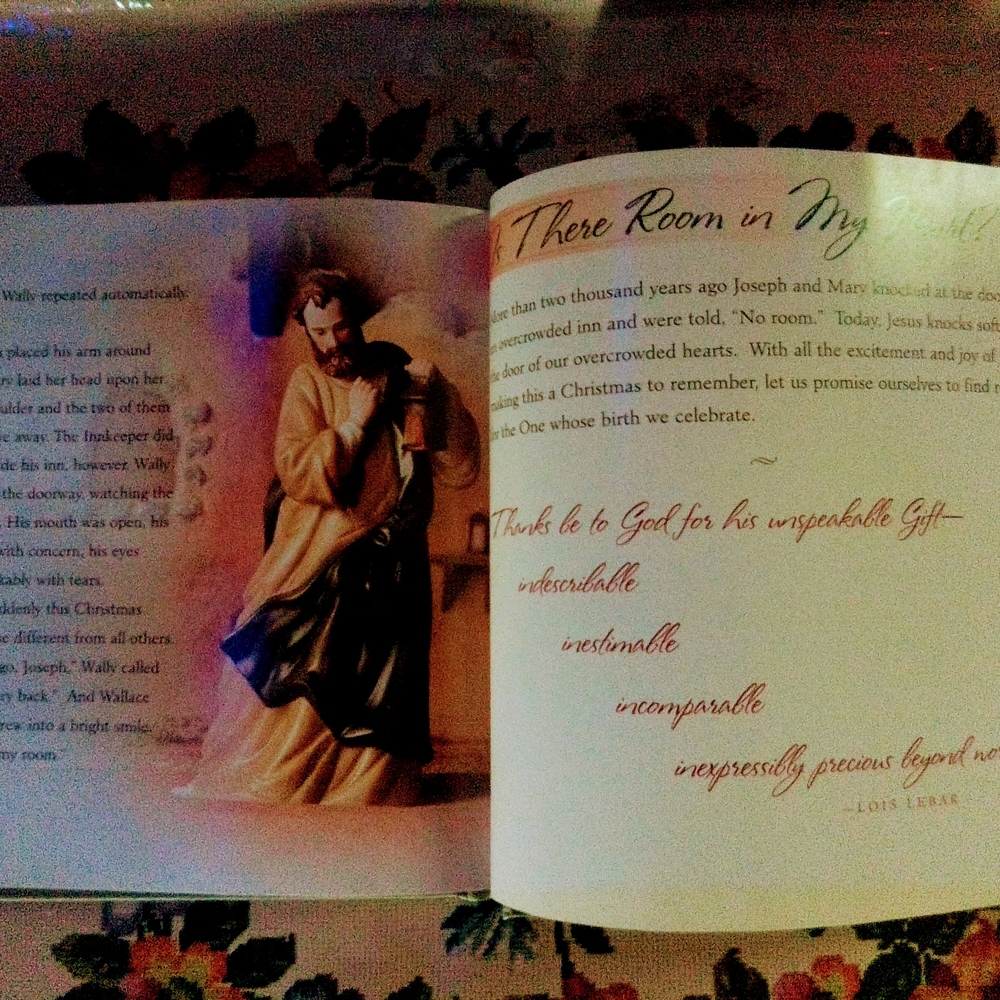 Wally repeated automatically.
placed his arm around
laid her head upon her
and the two of them
away. The Innkeeper did
his inn, however. Wally
the doorway, watching the
His mouth was open, his
with concern, his eyes
with tears.
this Christmas
different from all others.
Joseph," Wally called
back." And Wallace
into a bright smile.
my room."
There Room in My Heart?
than two thousand years ago Joseph and Mary knocked at the
overcrowded inn and were told, "No room." Today, Jesus knocks
door of our overcrowded hearts. With all the excitement and joy of
this a Christmas to remember, let us promise ourselves to find
the One whose birth we celebrate.
~
Thanks be to God for his unspeakable Gift—
indescribable
inestimable
incomparable
inexpressibly precious beyond
—LOIS LEBAR